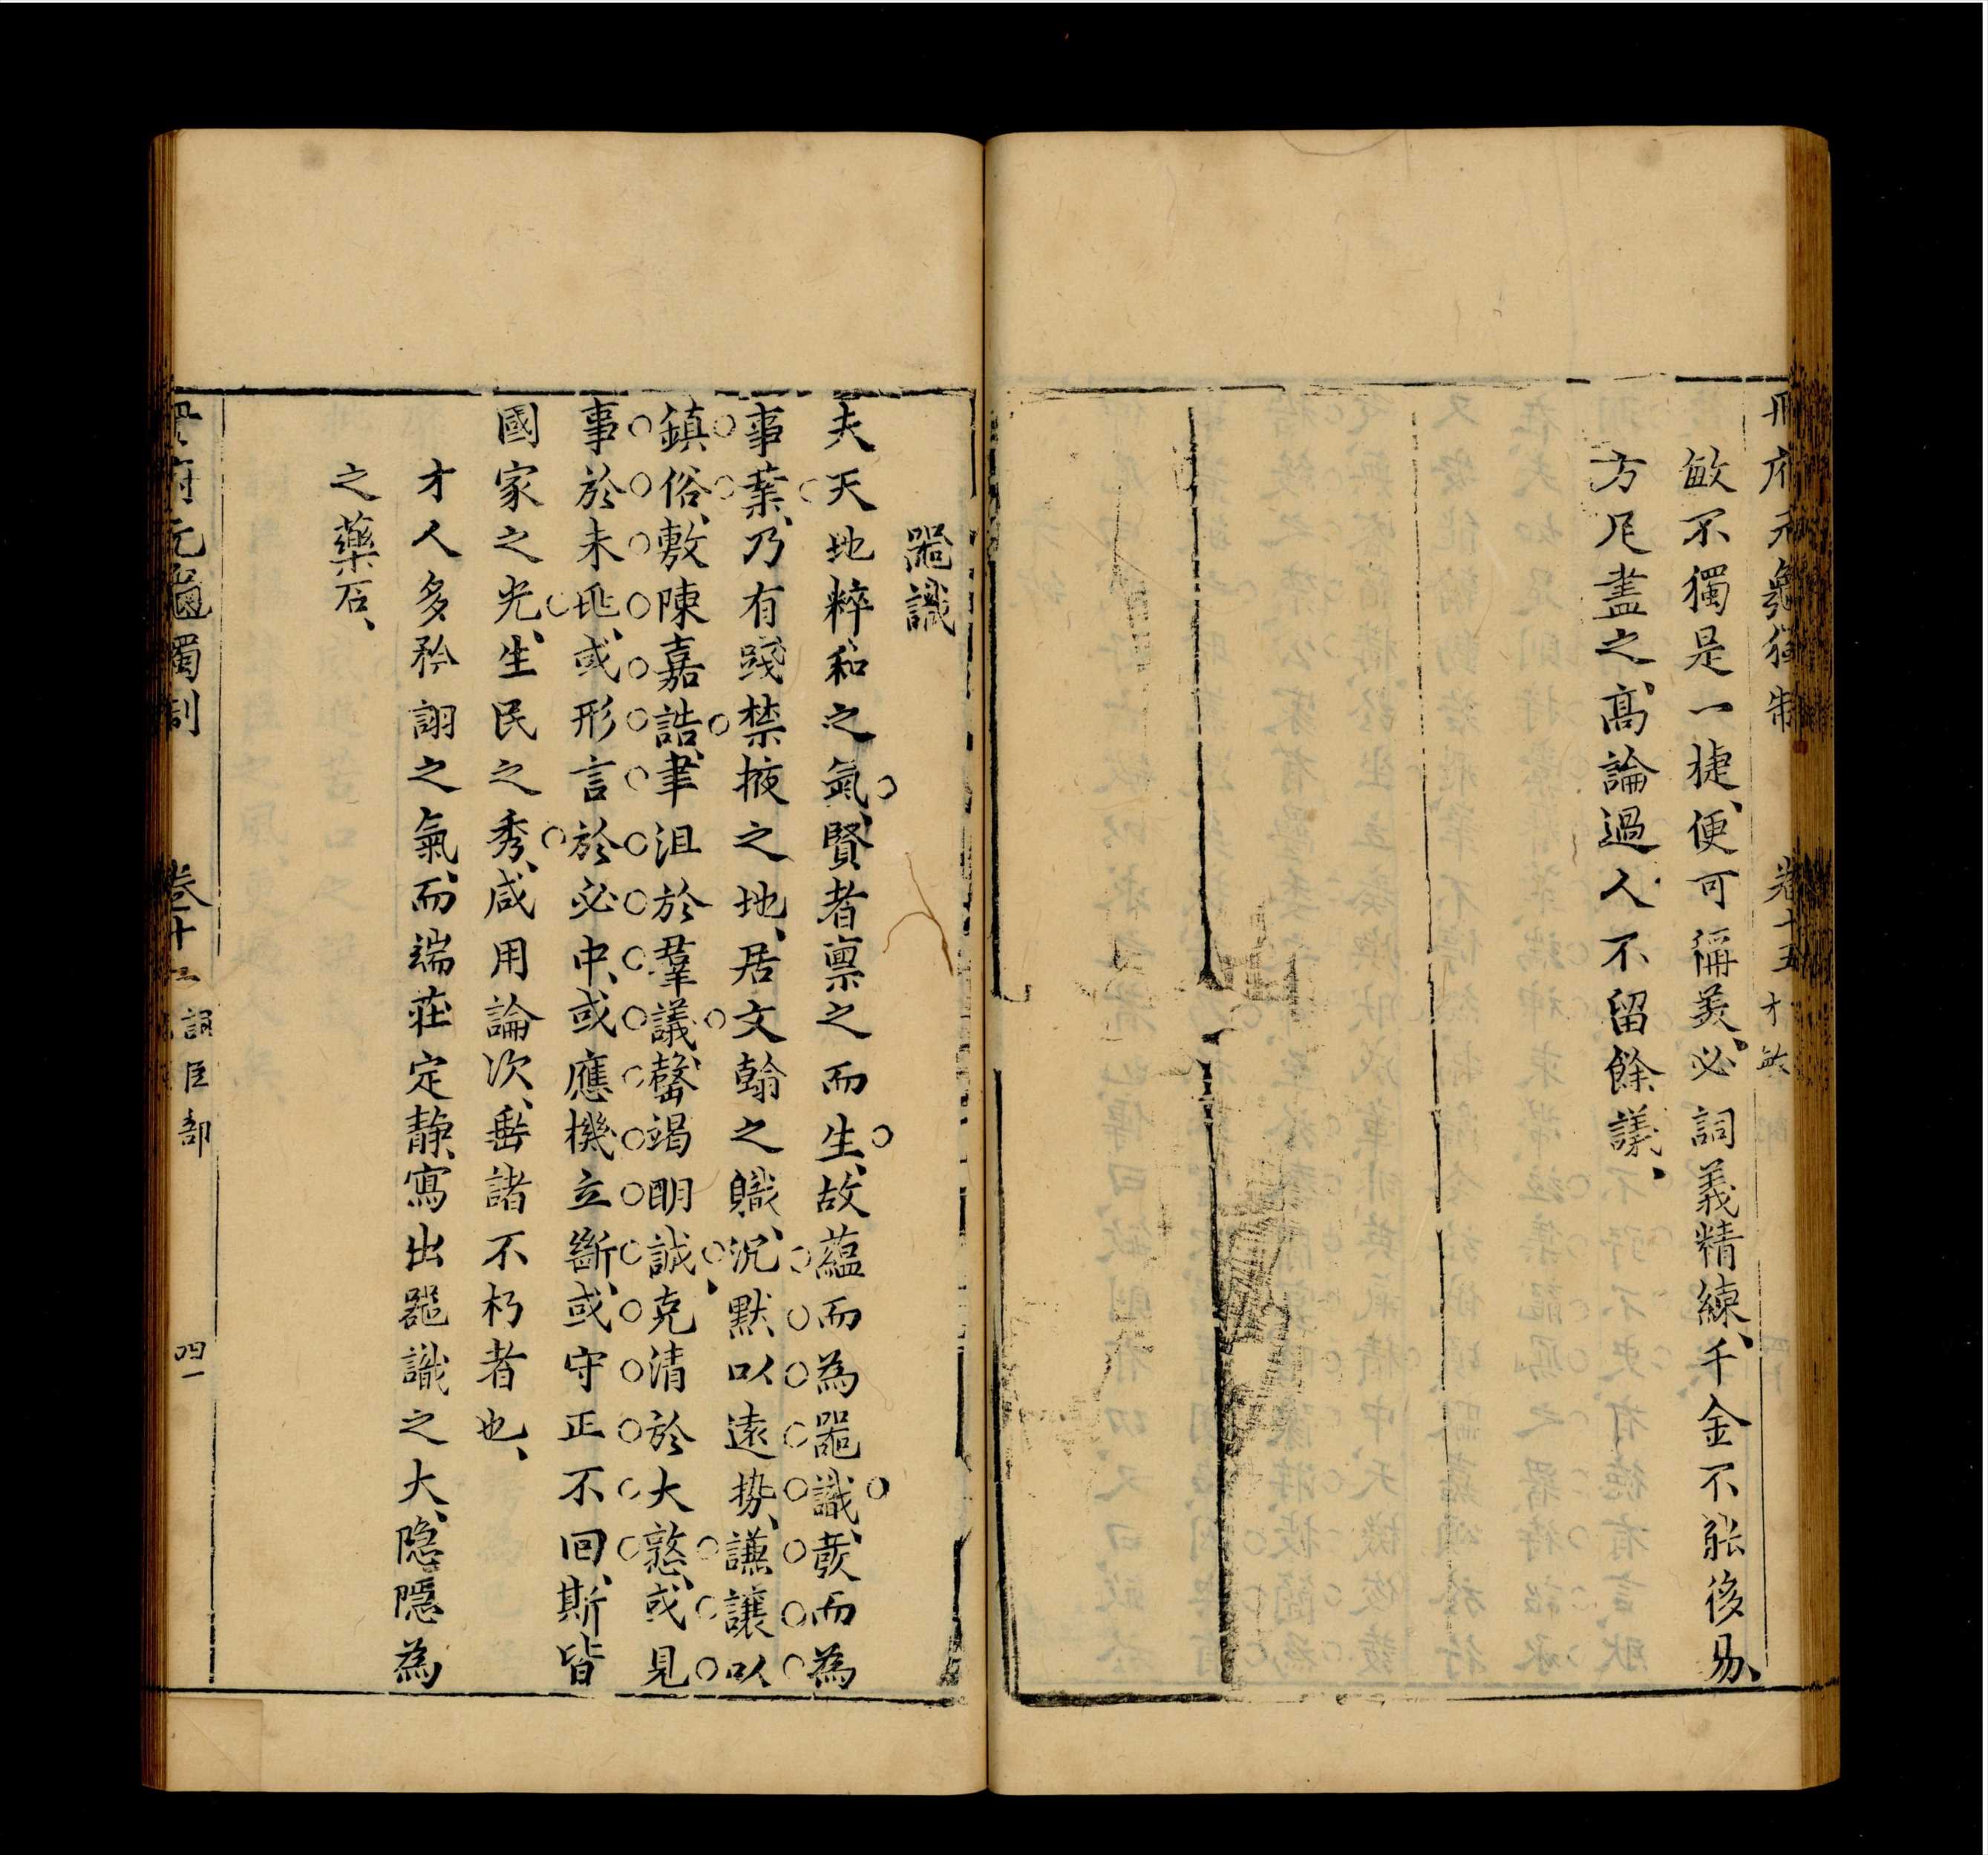 冊府元龜獨制 卷十五 才敏
敏不獨是一捷、便可稱美、必詞義精練、千金不能後易、
方尺盡之、高論過人不留餘議、
器識
夫天地粹和之氣、賢者禀之而生、故蘊而為器識、發而為
事業、乃有踐禁掖之地、居文翰之職、沉默以遠勢、謙讓以
鎮俗、敷陳嘉誥、聿沮於羣議、罄竭明誠、克清於大憝、或見
事於未兆、或形言於必中、或應機立斷、或守正不回、斯皆
國家之光、生民之秀、咸用論次、垂諸不朽者也、
才人多矜詡之氣、而端莊定静、寫出器識之大、隐隱為
之藥石、
府元龜獨制 卷十五 詞臣部 四一